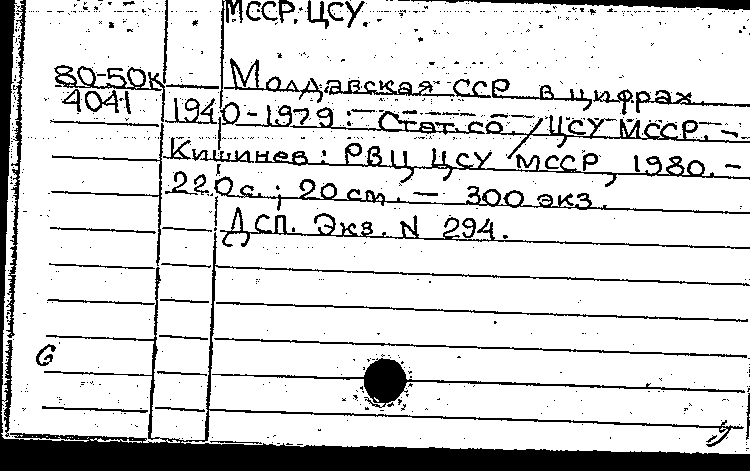 МССР. ЦСУ.
80-50к Молдавская ССР в цифрах.
4041 1940-1979: Стат. сб. / ЦСУ МССР. –
Кишинев: РВЦ ЦСУ МССР, 1980. –
220 с.; 20 см. — 300 экз.
ДСП. Экз. N 294.
6
у